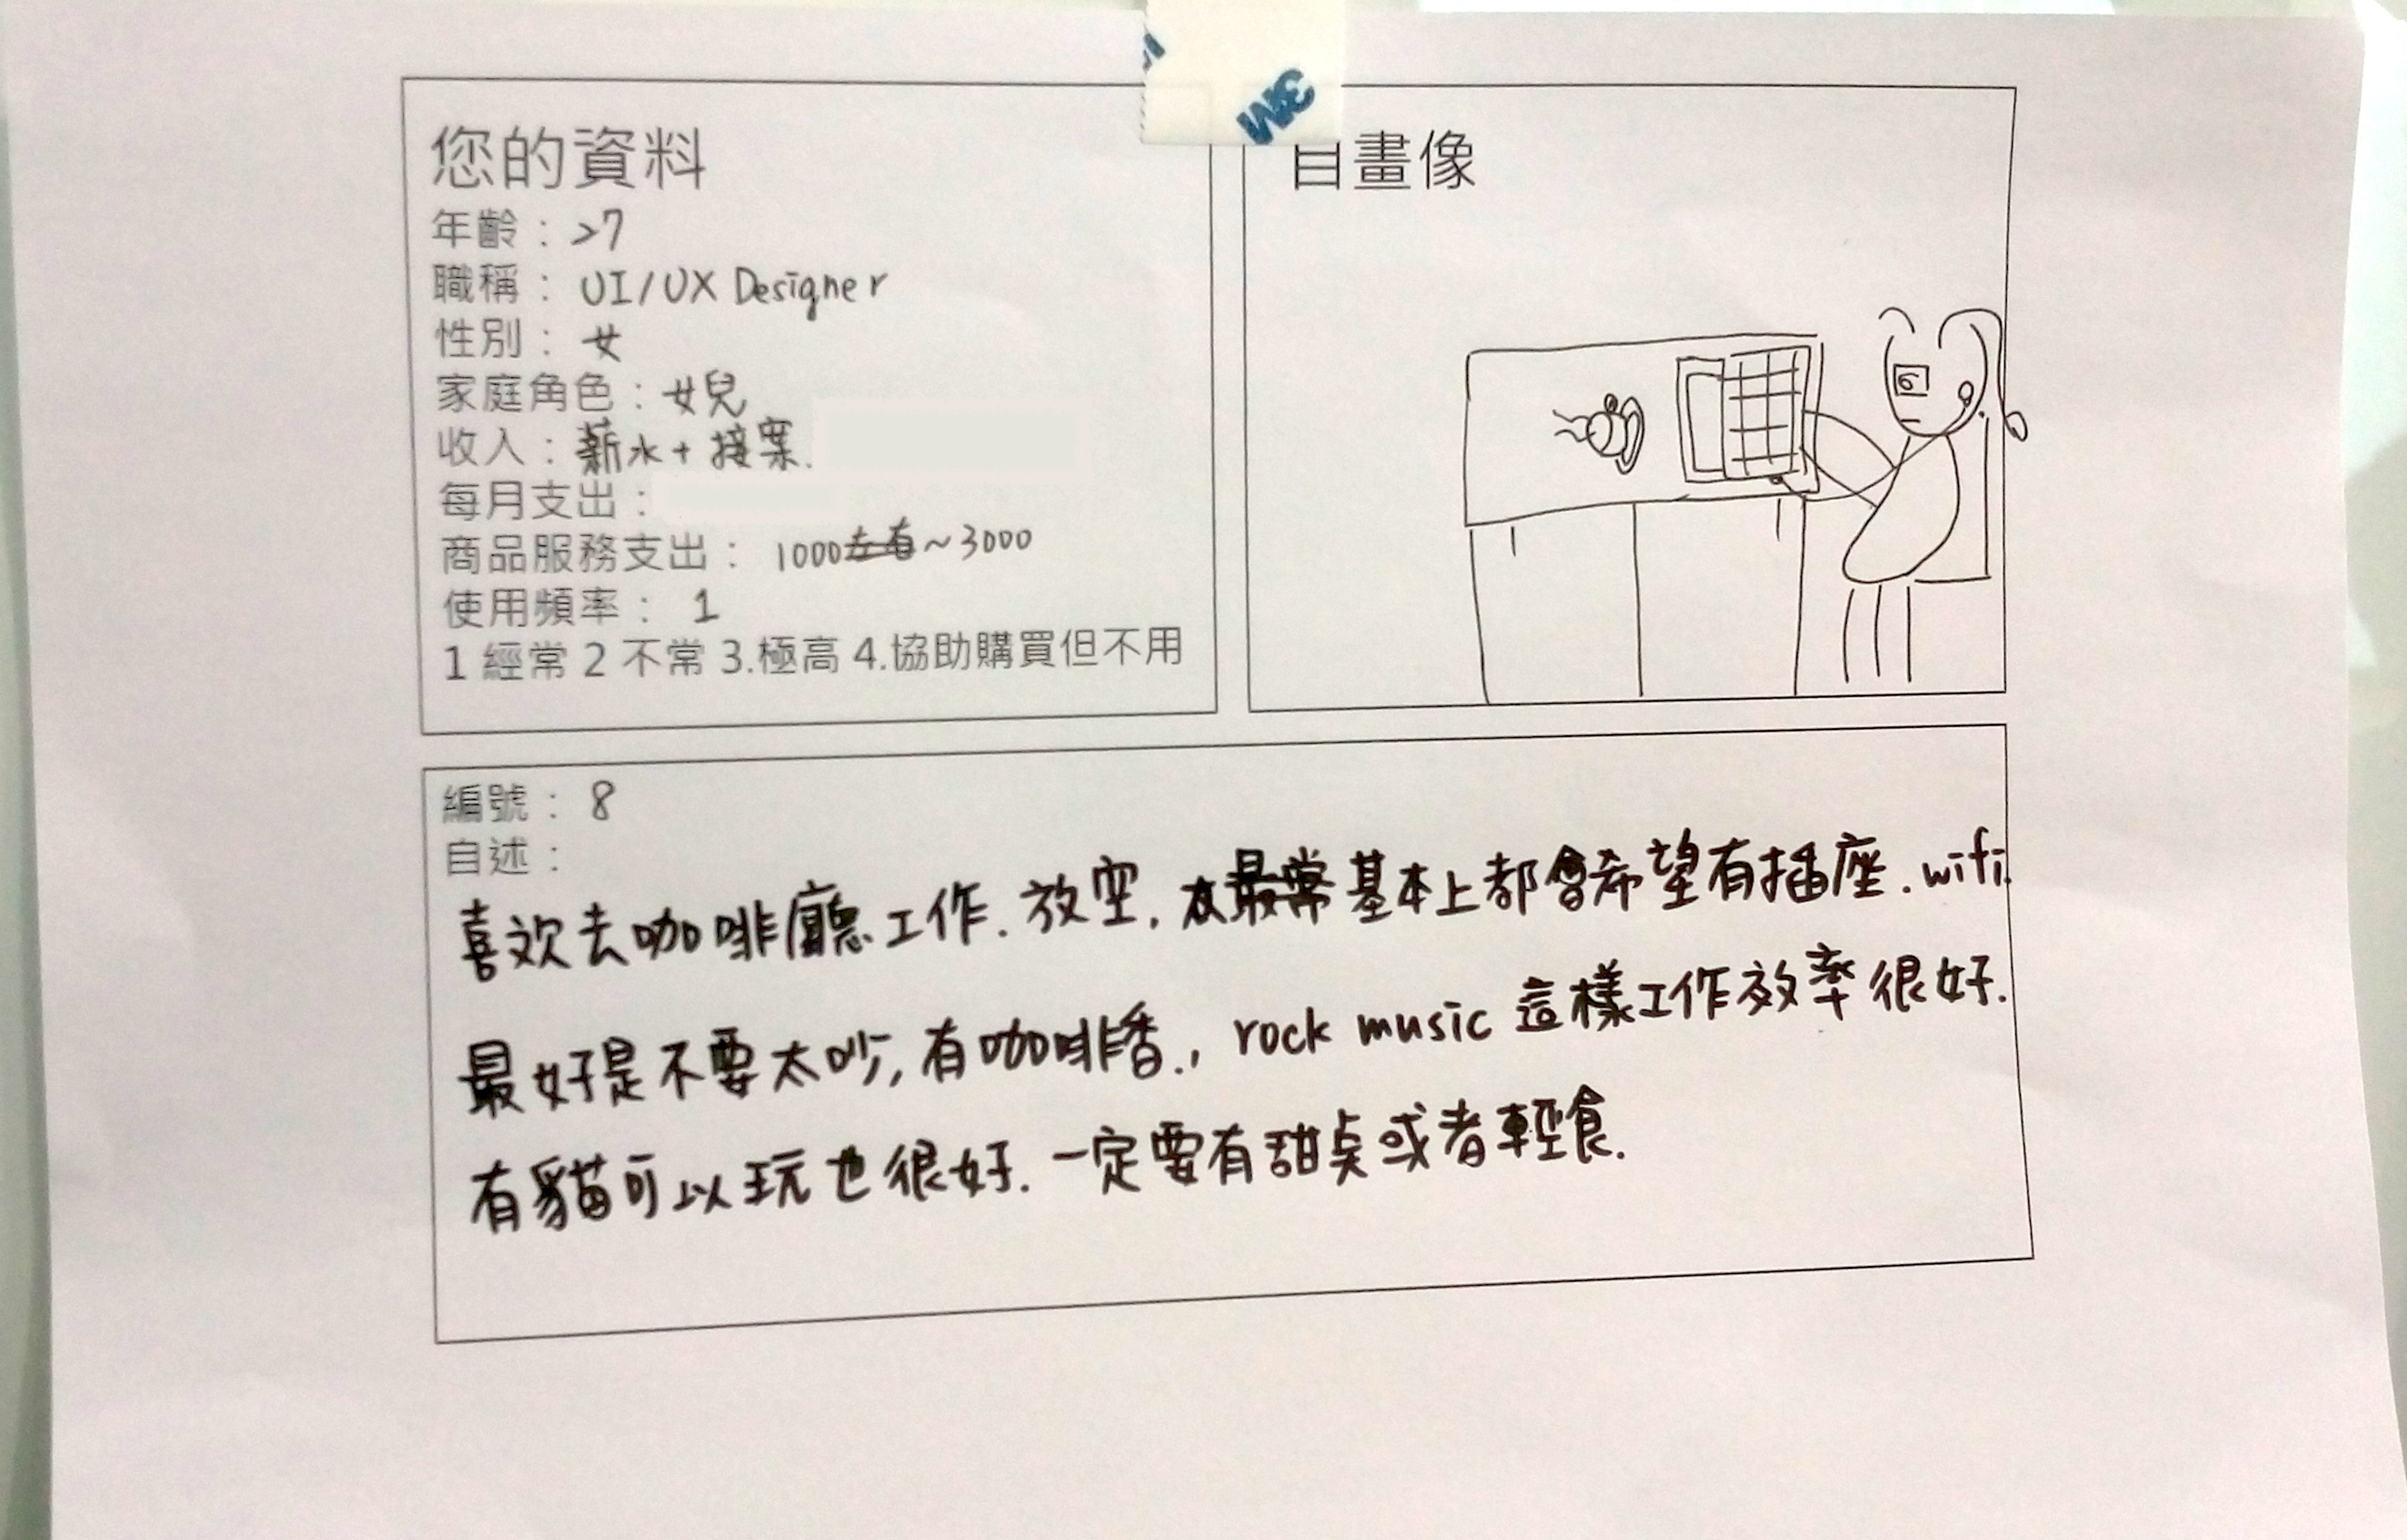 3M
您的資料
年齡：27
職稱：UI/UX Designer
性別：女
家庭角色：女兒
收入：薪水+接案.
每月支出：
商品服務支出： 1000左右~3000
使用頻率： 1
1 經常 2 不常 3.極高 4.協助購買但不用
自畫像
編號： 8
自述：
喜欢去咖啡廳工作.放空.最常基本上都會希望有插座.wifi.
最好是不要太吵,有咖啡香., rock music 這樣工作效率很好.
有貓可以玩也很好.一定要有甜點或者輕食.